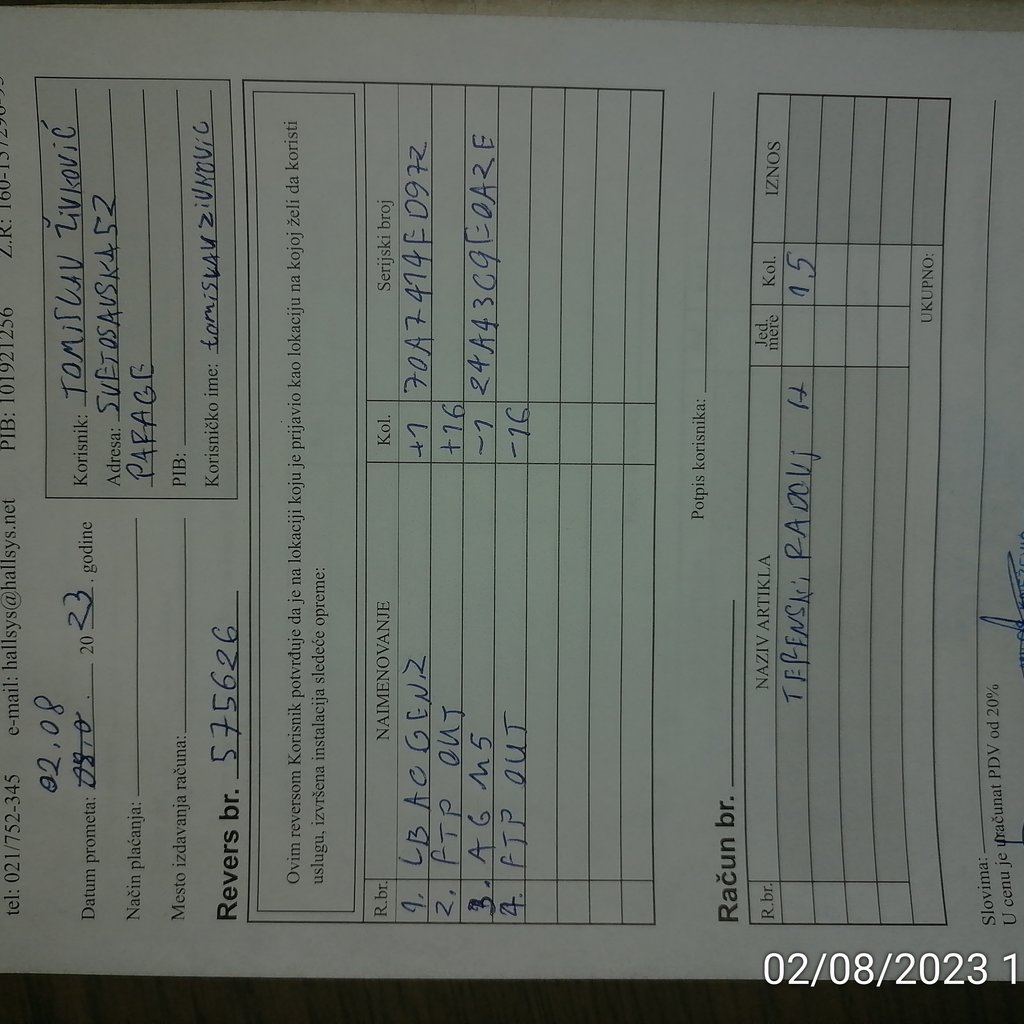 tel: 021/752-345 e-mail: hallsys@hallsys.net PIB: 101921256 Z.R: 160-137296-93
02.08
Datum prometa: 03.0 . 2023. godine
Način plaćanja:
Mesto izdavanja računa:
Korisnik: TOMISLAV ŽIVKOVIĆ
Adresa: SVETOSAVSKA 52
PARAGE
PIB:
Korisničko ime: tomislavzivkovic
Revers br. 575626
Ovim reversom Korisnik potvrđuje da je na lokaciji koju je prijavio kao lokaciju na kojoj želi da koristi
uslugu, izvršena instalacija sledeće opreme:
R.br. NAIMENOVANJE Kol. Serijski broj
1. LB AC GEN2 +1 70A7414ED972
2. FTP OUT +16
3. AG M5 -1 24A43C9E0A2E
4. FTP OUT -16
Potpis korisnika:
Račun br.
R.br. NAZIV ARTIKLA Jed. mere Kol. IZNOS
TERENSKI RADOVI H 1,5
UKUPNO:
Slovima:
U cenu je uračunat PDV od 20%
02/08/2023 1